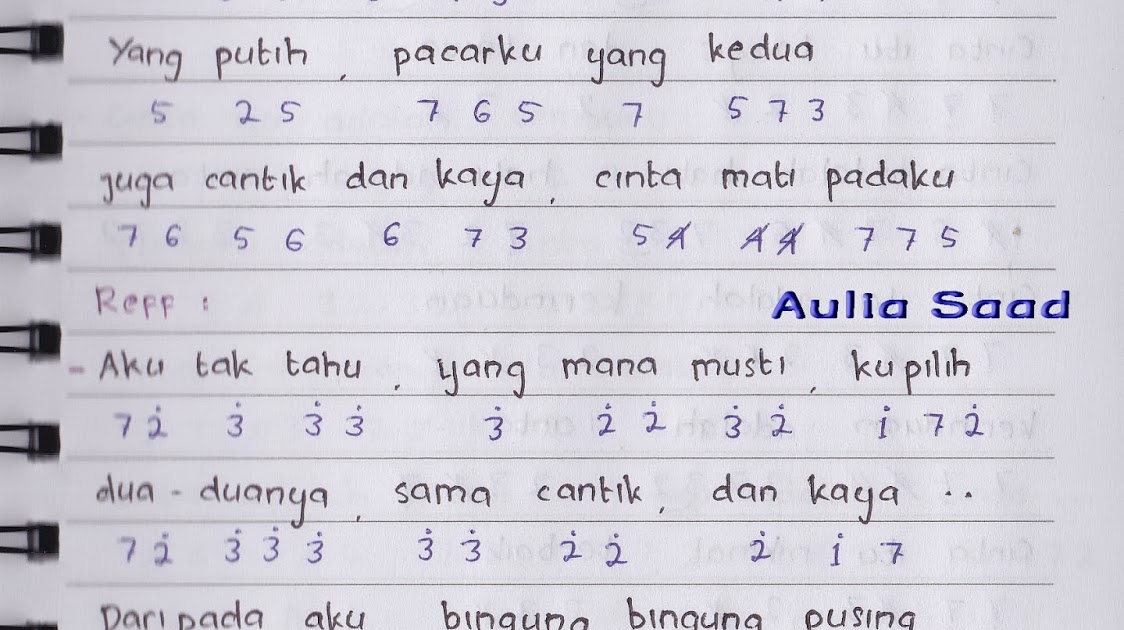 Yang putih, pacarku yang kedua
5 2 5 7 6 5 7 5 7 3
juga cantik dan kaya, cinta mati padaku
7 6 5 6 6 7 3 5 4̸ 4̸ 4̸ 7 7 5
Reff :
Aulia Saad
- Aku tak tahu, yang mana musti, ku pilih
7 2̇ 3̇ 3̇ 3̇ 3̇ 2̇ 2̇ 3̇ 2̇ 1̇ 7 2̇
dua - duanya, sama cantik, dan kaya ..
7 2̇ 3̇ 3̇ 3̇ 3̇ 3̇ 2̇ 2̇ 2̇ 1̇ 7
Daripada aku bingung bingung pusing